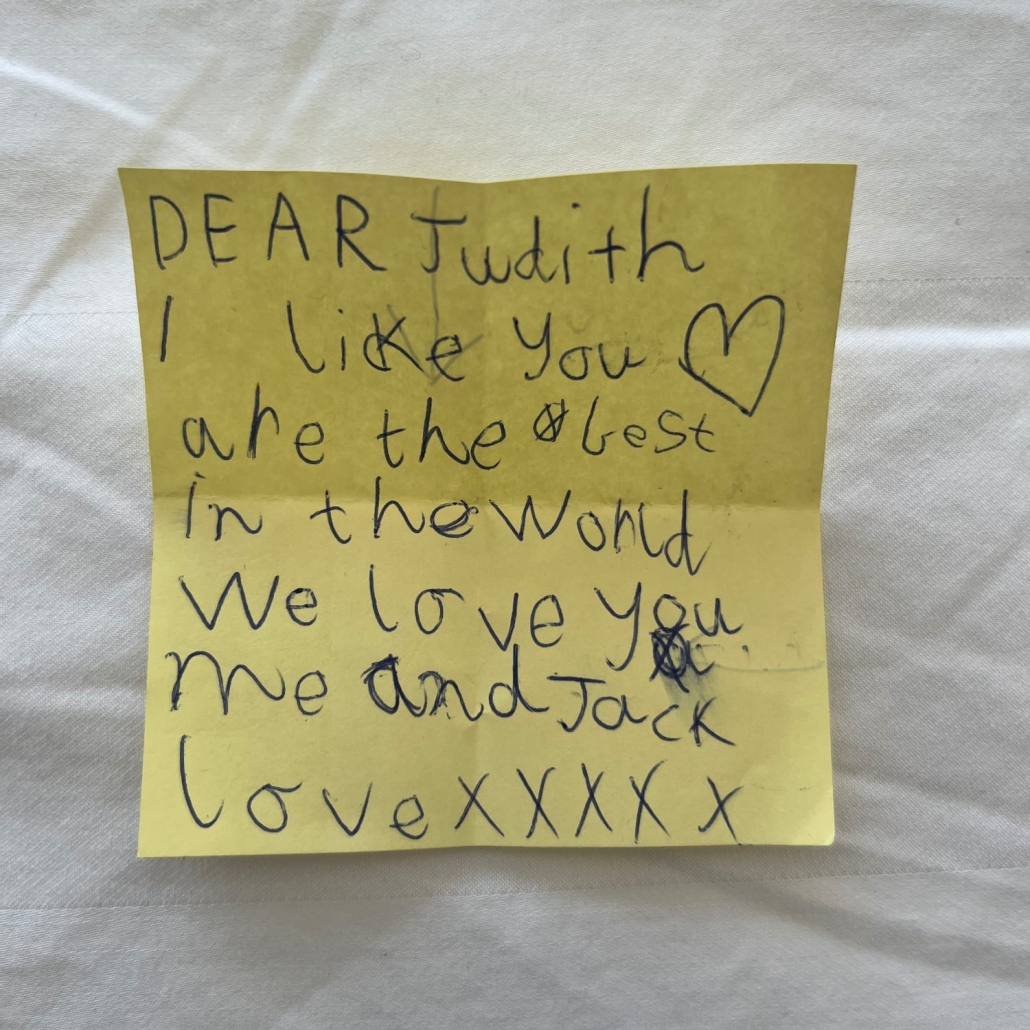 DEAR Judith
I like you ♡
are the best
in the World
We love you
me and Jack
love x x x x x